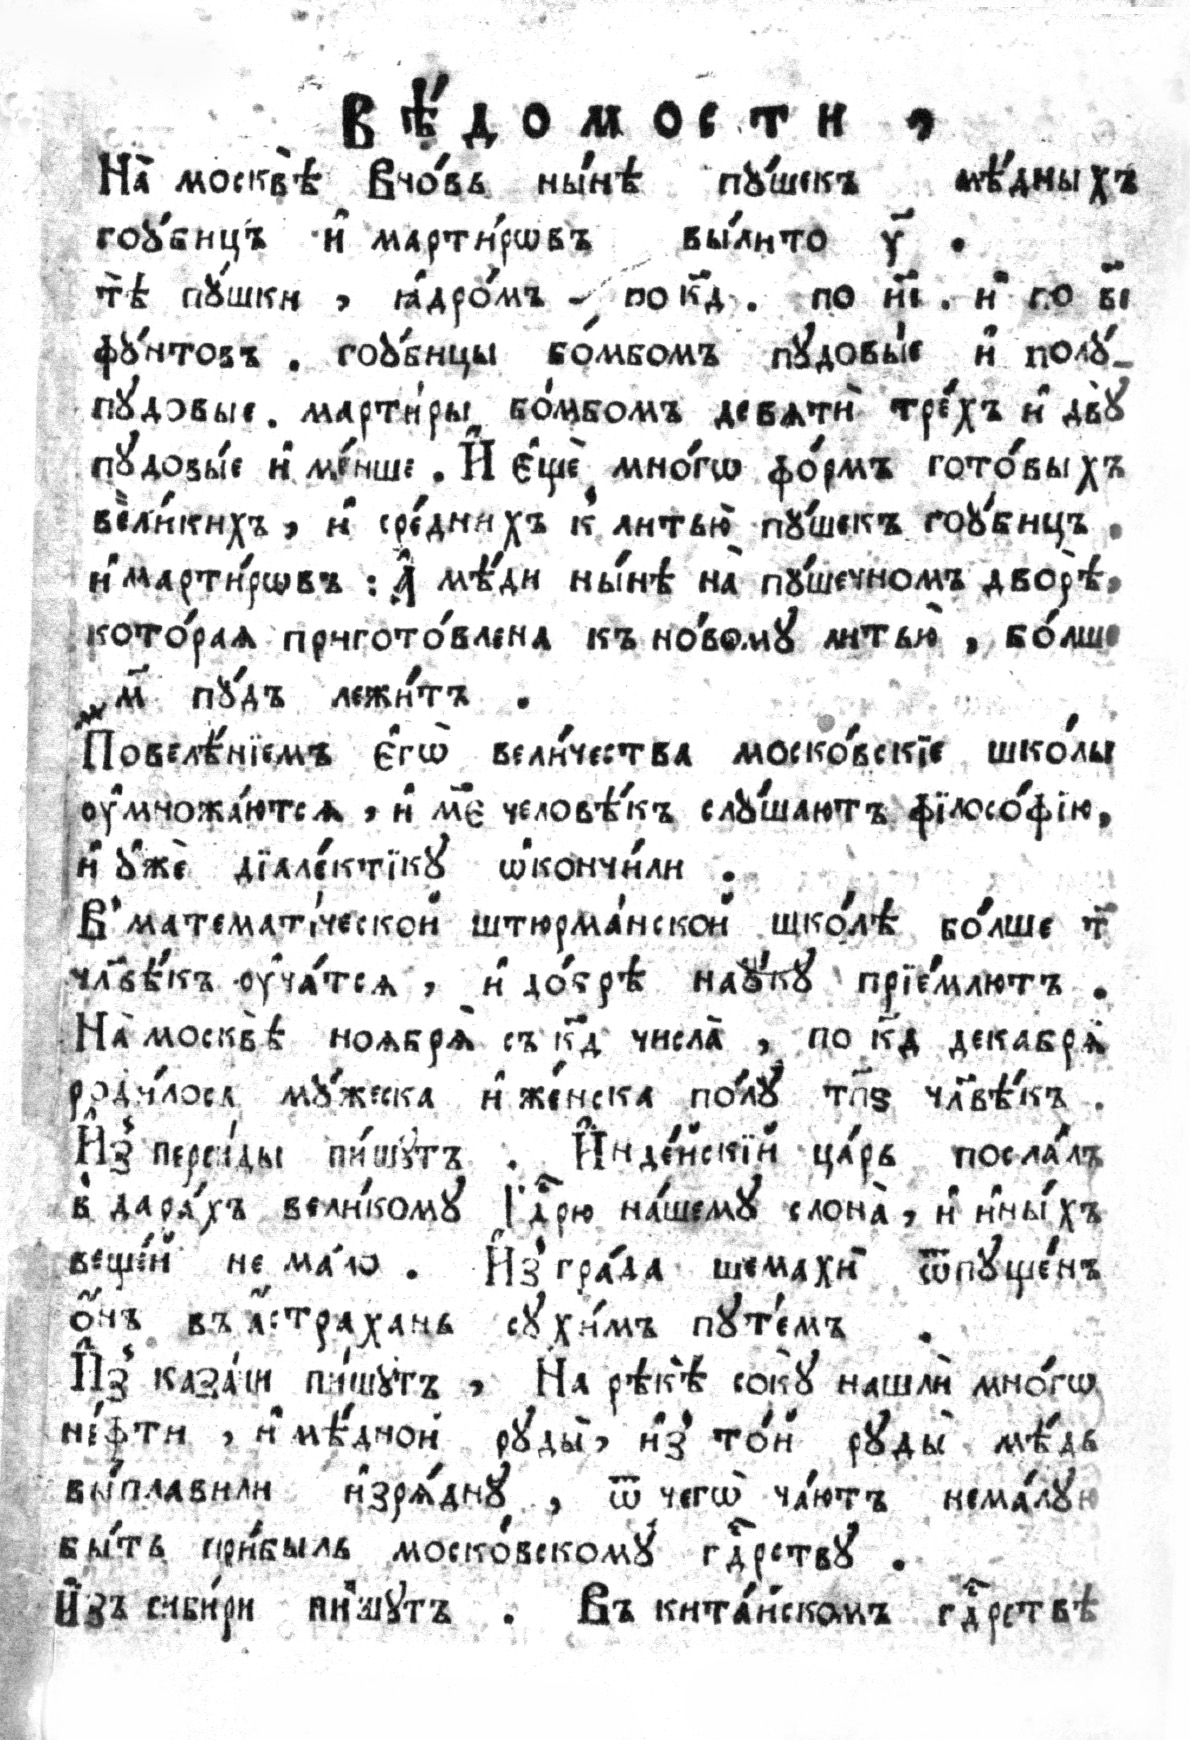 Вѣ́домости,
На̀ москвѣ̀ вно́вь ны́нѣ пꙋ́шекъ мѣ́дныхъ
гоꙋ́бицъ и҆ марти́рѡвъ вы́лито у҃ .
тѣ̀ пꙋ́шки , ꙗ҆дро́мъ по к҃д . по и҃і . и҆ по в҃і
фꙋ́нтовъ . гоꙋ́бицы бо́мбомъ пꙋдовы́е и҆ полꙋ́-
пꙋдовые . марти́ры бо́мбомъ девѧтѝ тре́хъ и҆ двꙋ̀
пꙋдовы́е и҆ ме́нше . И҆ є҆щѐ мно́гѡ фо́рмъ гото́выхъ
вели́кихъ , и҆ сре́днихъ к̾ литью̀ пꙋ́шекъ гоꙋ́бицъ .
и҆ марти́рѡвъ : А҆ мѣ́ди ны́нѣ на̀ пꙋ́шечномъ дворѣ̀,
кото́раѧ пригото́влена къ но́вомꙋ литью̀ , бо́лше
м҃ пꙋ́дъ лежи́тъ .
Повелѣ́нїемъ є҆гѡ̀ вели́чества моско́вскїе шко́лы
оу҆множа́ютсѧ , и҆ м҃є человѣ́къ слꙋ́шаютъ фїлосо́фїю,
и҆ ꙋ҆жѐ дїале́ктїкꙋ ѡ҆кончи́ли .
В̾ математі́ческой штюрма́нской шко́лѣ бо́лше т҃
чл҃вѣ́къ оу҆ча́тсѧ , и҆ до́брѣ наꙋ́кꙋ прїе́млютъ .
На̀ москвѣ̀ ноѧбрѧ̀ съ к҃д числа̀ , по к҃д декабрѧ̀
роди́лосѧ мꙋ́жеска и҆ же́нска по́лꙋ тп҃ѕ чл҃вѣ́къ .
И҆з̾ перси́ды пи́шꙋтъ . И҆нде́йскїй ца́рь посла́лъ
в̾ дара́хъ вели́комꙋ Гд҃рю на́шемꙋ слона̀ , и҆ и҆ны́хъ
веще́й не ма́лѡ . И҆з̾ гра́да шемахѝ ѿпꙋще́нъ
о҆́нъ въ а҆́страхань сꙋхи́мъ пꙋте́мъ .
И҆з̾ каза́ни пи́шꙋтъ , На рѣкѣ̀ сокꙋ̀ нашлѝ мно́гѡ
не́фти , и҆ мѣ́дной рꙋды̀ , и҆з̾ то́й рꙋды̀ мѣ́дь
вы́плавили и҆зрѧ́днꙋ , ѿ чегѡ̀ ча́ютъ нема́лꙋю
бы́ть при́быль моско́вскомꙋ гд҃рствꙋ .
И҆зъ сиби́ри пи́шꙋтъ . Въ кита́йскомъ гд҃рствѣ